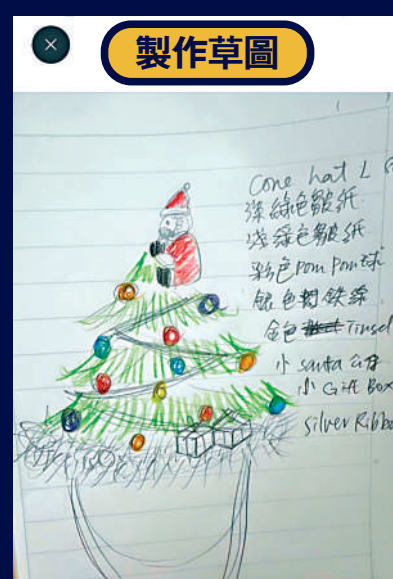 製作草圖
Cone hat L
深綠色皺紙
淺綠色皺紙
彩色Pom Pom球
銀色閃鐵線
金色 Tinsel
小 santa 公仔
小 Gift Box
silver Ribbo